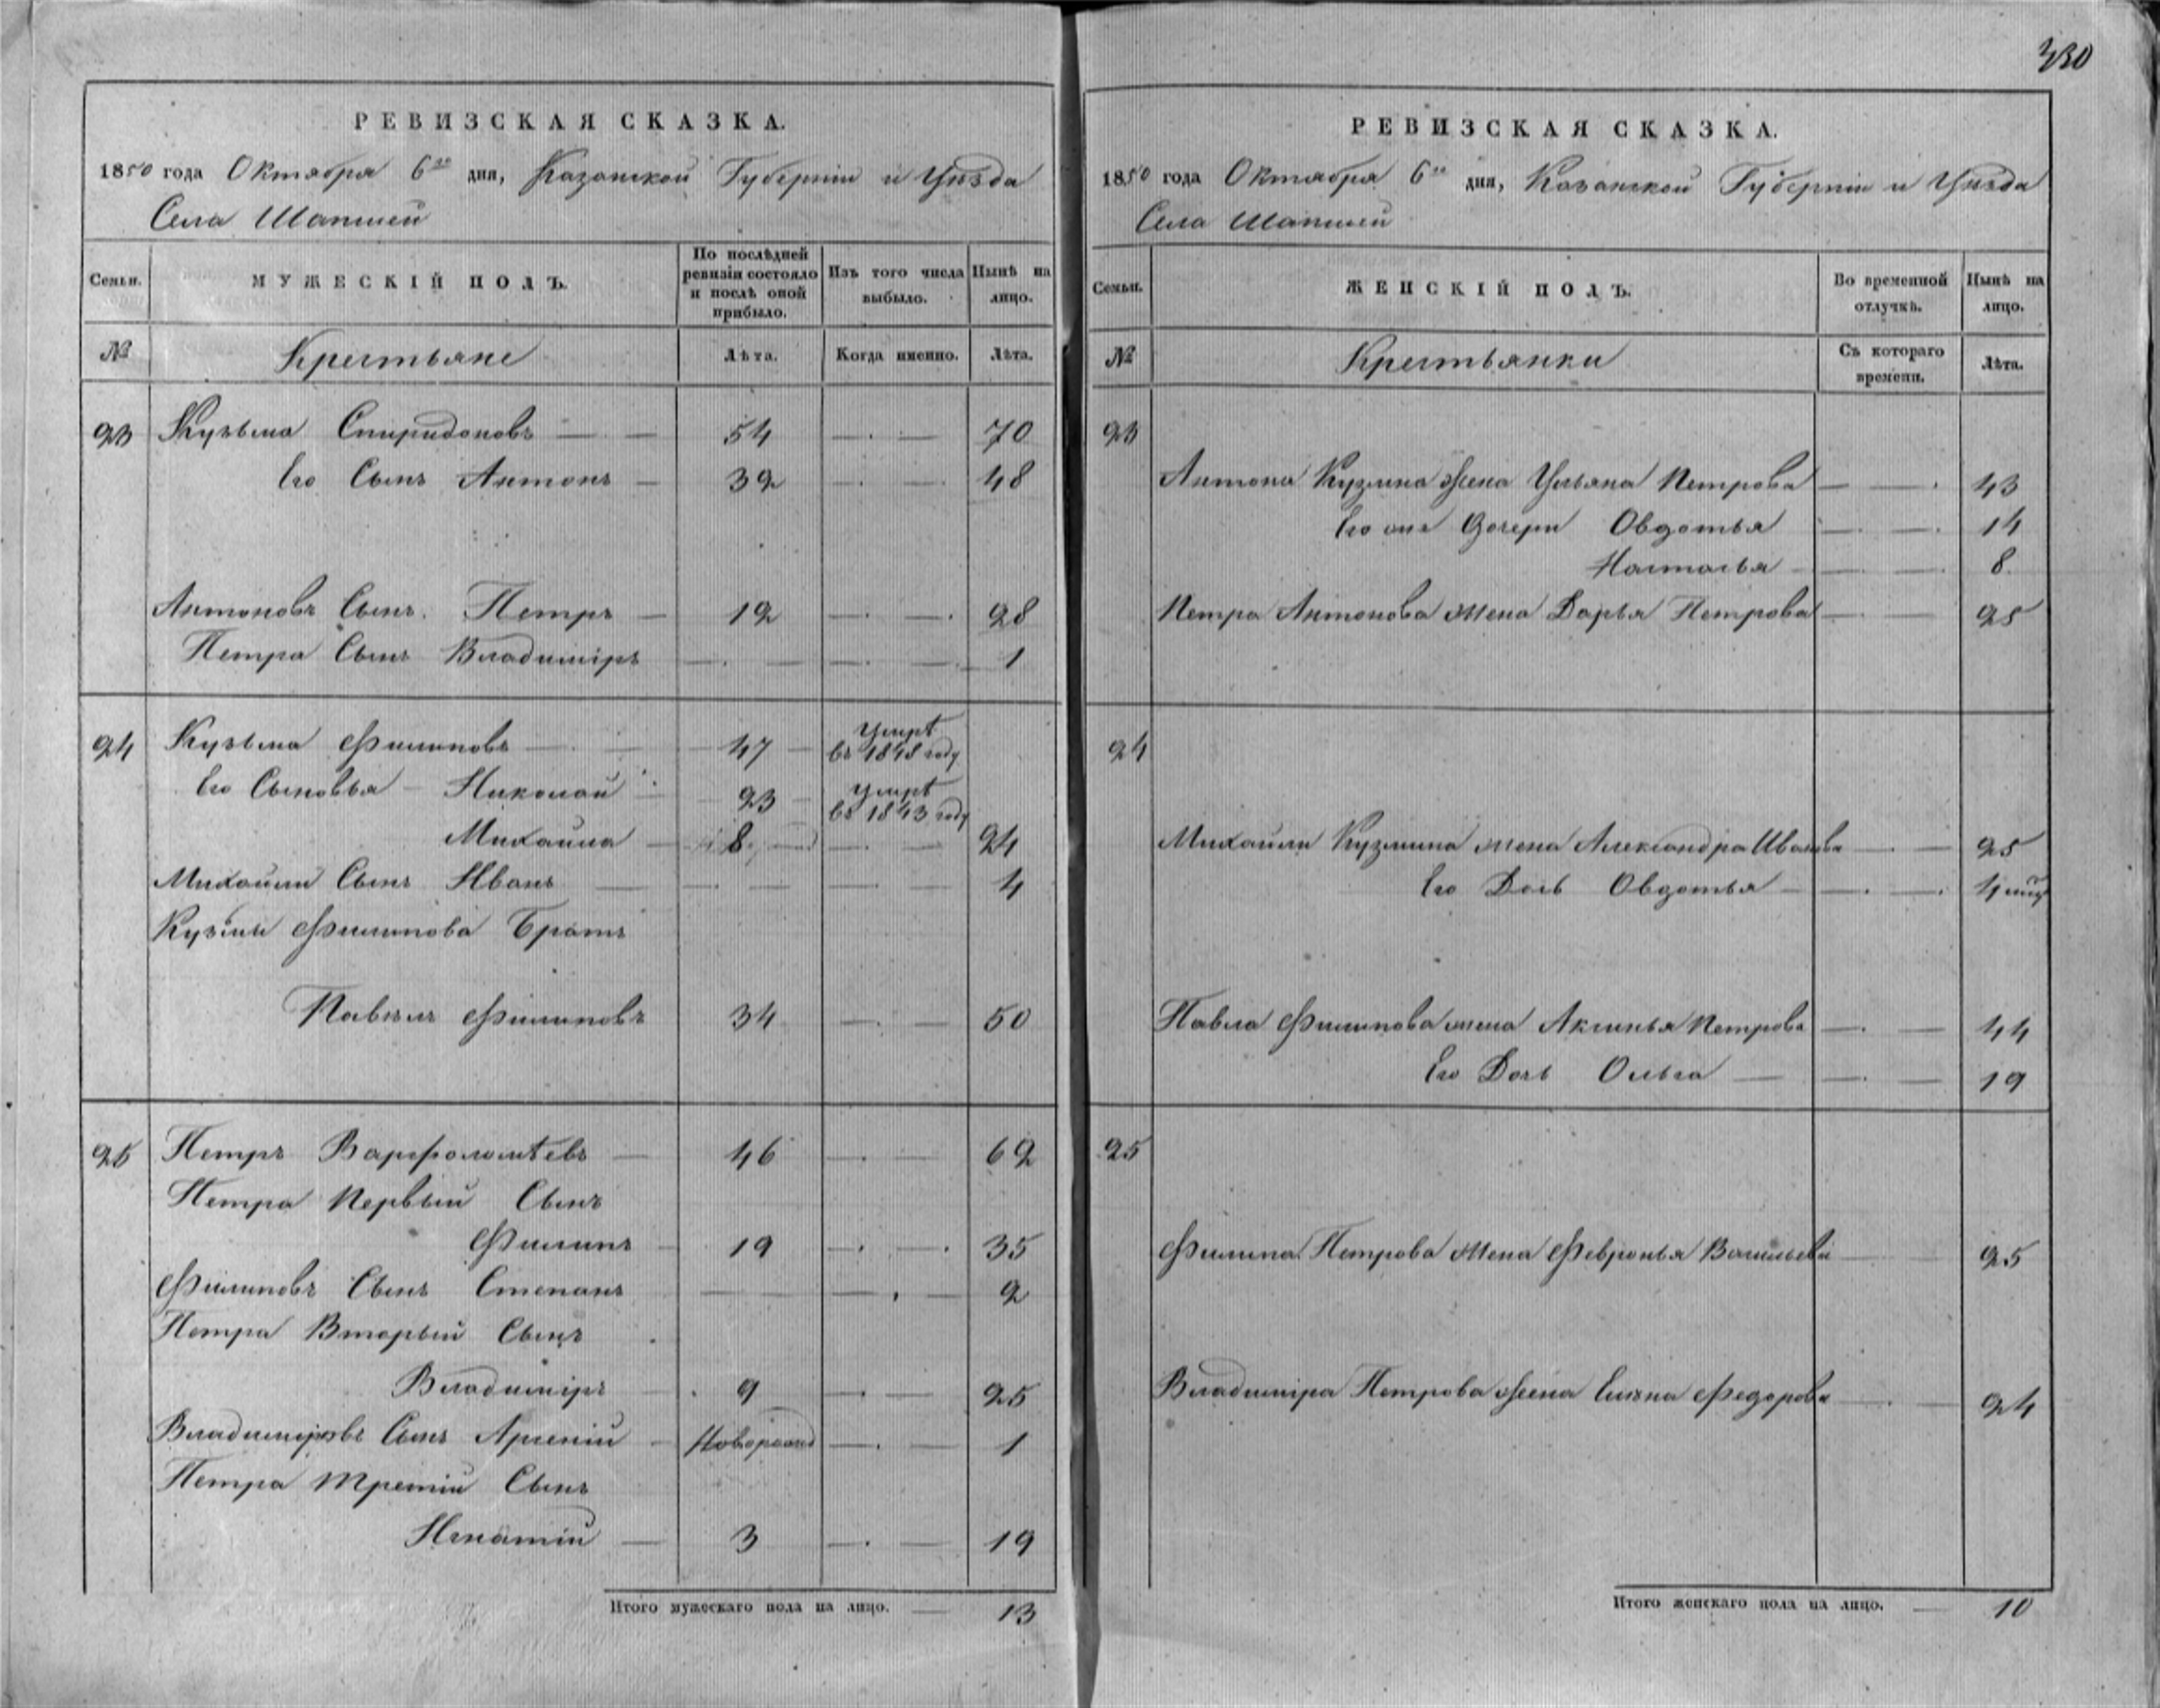 330
РЕВИЗСКАЯ СКАЗКА.
1850 года Октября 6го дня, Казанской Губерніи и Уѣзда
Села Шапшей
Семьи. МУЖЕСКІЙ ПОЛЪ. По послѣдней ревизіи состояло и послѣ оной прибыло. Изъ того числа выбыло. Нынѣ на лицо.
№ Крестьяне Лѣта. Когда именно. Лѣта.
23 Кузьма Спиридоновъ — — 54 — . — 70
Его Сынъ Антонъ — 32 — . — 48
Антоновъ Сынъ Петръ — 12 — . — 28
Петра Сынъ Владиміръ — . — — . — 1
24 Кузьма Филиповъ — — 47 Умрѣ въ 1848 году
Его Сыновья — Николай — 23 Умрѣ въ 1843 году
Михайла — 8 — . — 24
Михайлы Сынъ Иванъ — — . — — . — 4
Кузьмы Филипова Братъ
Павелъ Филиповъ 34 — . — 50
25 Петръ Варфоломѣевъ — 46 — . — 62
Петра Первый Сынъ
Филипъ — 19 — . — 35
Филиповъ Сынъ Степанъ — — — . — 2
Петра Вторый Сынъ
Владиміръ — 9 — . — 25
Владиміровъ Сынъ Арсеній — Новорожд — . — 1
Петра Третій Сынъ
Игнатій — 3 — . — 19
Итого мужескаго пола на лицо. — 13
РЕВИЗСКАЯ СКАЗКА.
1850 года Октября 6го дня, Казанской Губерніи и Уѣзда
Села Шапшей
Семьи. ЖЕНСКІЙ ПОЛЪ. Во временной отлучкѣ. Нынѣ на лицо.
№ Крестьянки Съ котораго времени. Лѣта.
23
Антона Кузмина Жена Ульяна Петрова — — . 43
Его же Дочери Овдотья — . — 14
Настасья — — — . 8
Петра Антонова жена Дарья Петрова — — 25
24
Михайлы Кузмина жена Александра Иванова — . — 25
Его Дочь Овдотья — — . — . 4
Павла Филипова жена Аксинья Петрова — . — 44
Его Дочь Ольга — — . — 19
25
Филипа Петрова жена Февронья Васильева — — 25
Владиміра Петрова Жена Елѣна Федорова — — 24
Итого женскаго пола на лицо. — 10